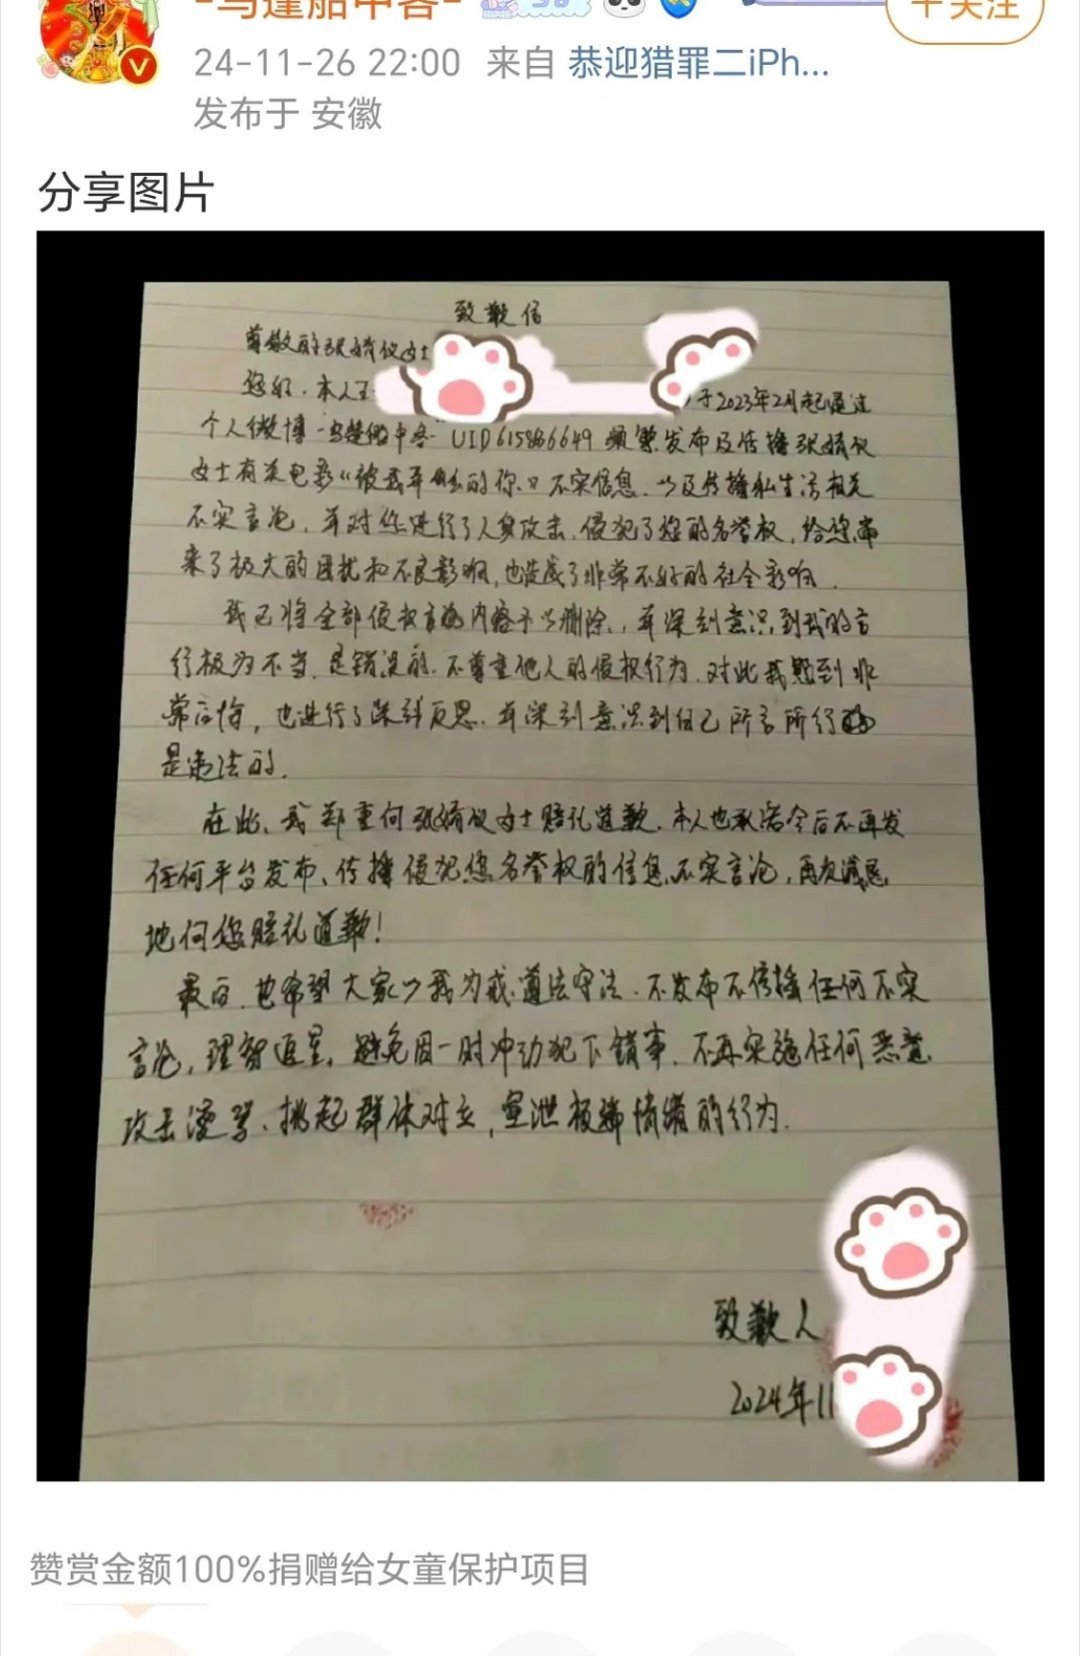 24-11-26 22:00 来自 恭迎猎罪二iPh...
十关注
发布于 安徽
分享图片
致歉信
尊敬的张婧仪女士
您好，本人王
于2023年2月起通过
个人微博 UID 频繁发布及传播张婧仪
女士有关电影《被我弄丢的你》不实信息，以及传播私生活相关
不实言论，并对您进行了人身攻击，侵犯了您的名誉权，给您带
来了极大的困扰和不良影响，也造成了非常不好的社会影响.
我已将全部侵权 内容予以删除，并深刻意识到我的言
行极为不当，是错误的，不尊重他人的侵权行为，对此我 到非
常 悔，也进行了深刻反思，并深刻意识到自己所言所行
是违法的.
在此，我郑重向张婧仪女士赔礼道歉，本人也承诺今后不再发
任何平台发布、传播侵犯您名誉权的信息、不实言论，再次诚恳
地向您赔礼道歉！
最后，也希望大家以我为戒，遵法守法，不发布不传播任何不实
言论，理智追星，避免因一时冲动犯下错事，不再实施任何恶意
攻击谩骂、挑起群体对立，宣泄极端情绪的行为.
致歉人
2024年11
赞赏金额100%捐赠给女童保护项目